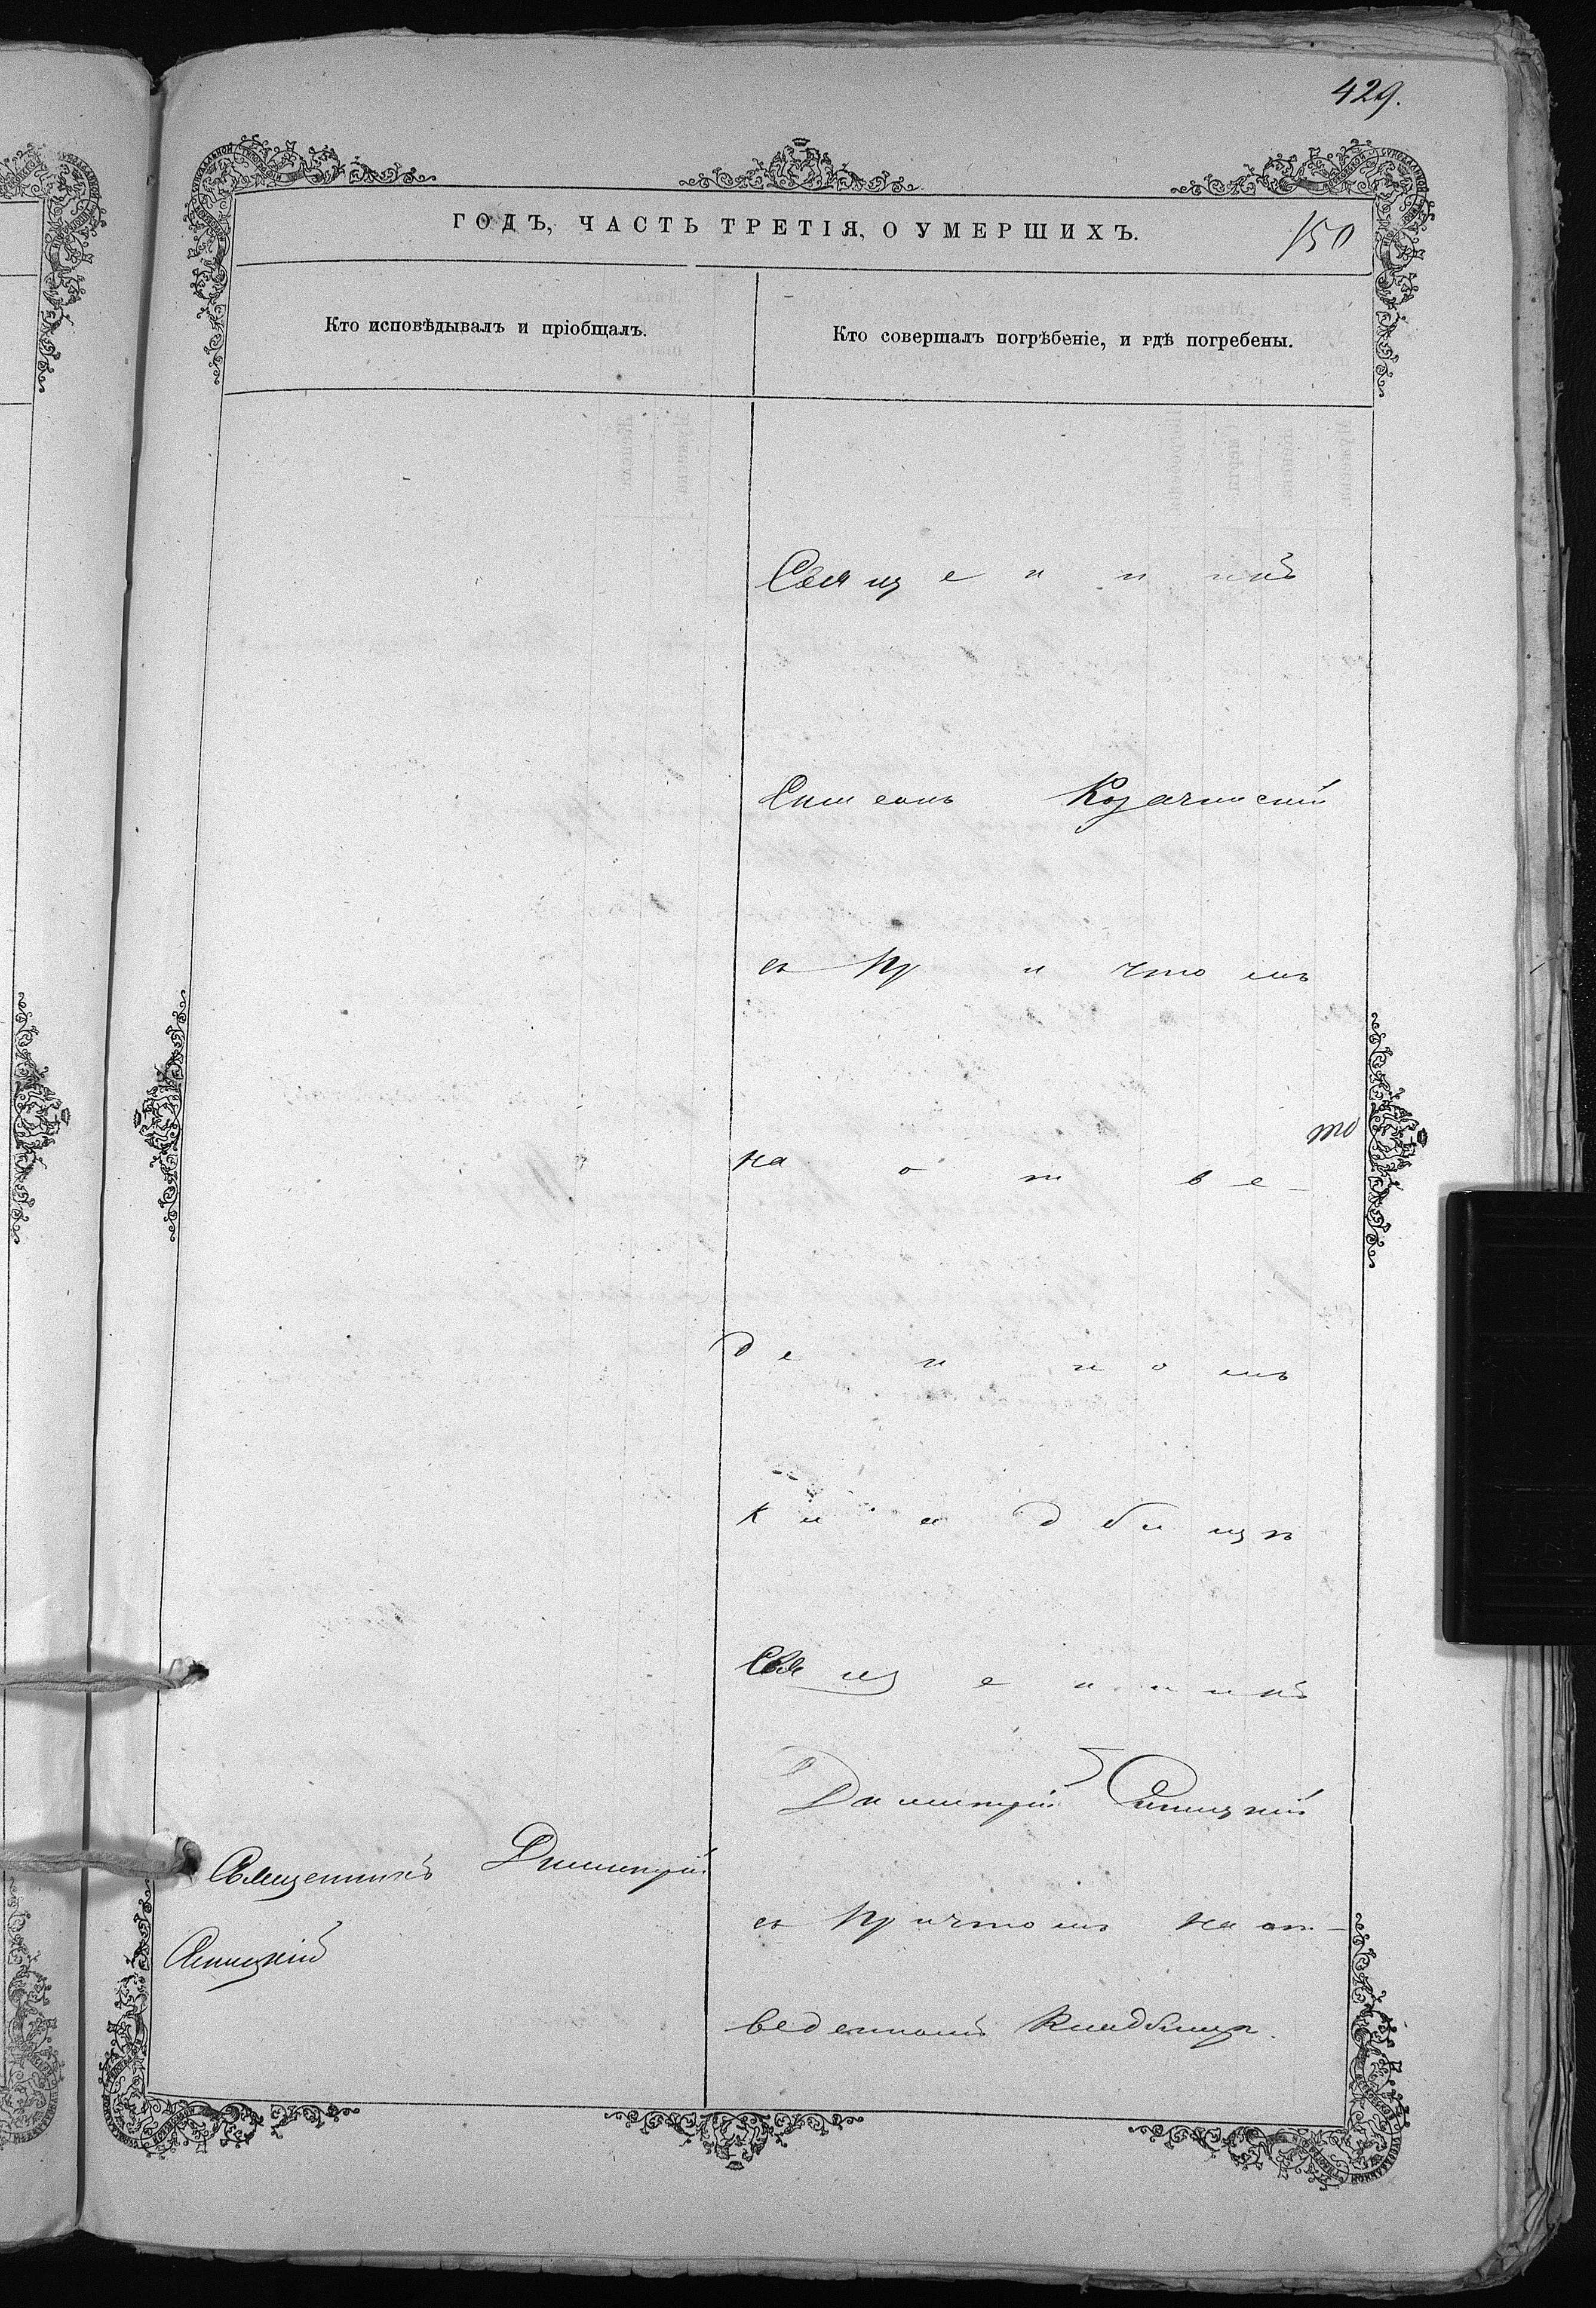 429.
ГОДЪ, ЧАСТЬ ТРЕТІЯ, О УМЕРШИХЪ.
150
Кто исповѣдывалъ и пріобщалъ.
Кто совершалъ погрѣбеніе, и гдѣ погребены.
Священникъ
Симеонъ Козачинскій
съ Причтомъ
на отве-
денномъ
кладбищѣ
Священникъ
Димитрій
съ Причтомъ на от-
веденномъ Кладбищѣ.
Священникъ Димитрій